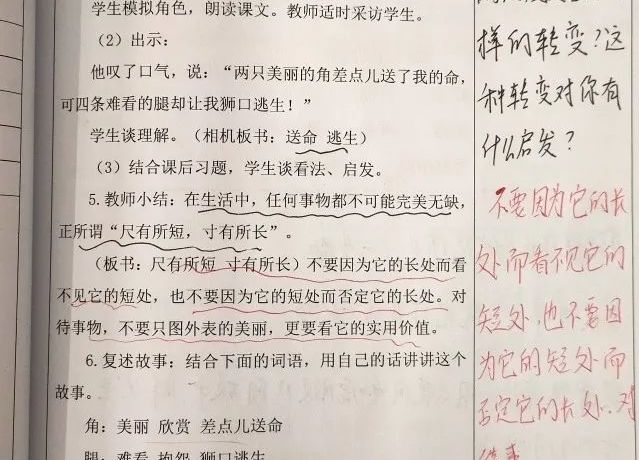 学生模拟角色，朗读课文。教师适时采访学生。
（2）出示：
他叹了口气，说：“两只美丽的角差点儿送了我的命，
可四条难看的腿却让我狮口逃生！”
学生谈理解。（相机板书：送命 逃生）
（3）结合课后习题，学生谈看法、启发。
5.教师小结：在生活中，任何事物都不可能完美无缺，
正所谓“尺有所短，寸有所长”。
（板书：尺有所短 寸有所长）不要因为它的长处而看
不见它的短处，也不要因为它的短处而否定它的长处。对
待事物，不要只图外表的美丽，更要看它的实用价值。
6.复述故事：结合下面的词语，用自己的话讲讲这个
故事。
角：美丽 欣赏 差点儿送命
腿：难看 抱怨 狮口逃生
样的转变？这
种转变对你有
什么启发？
不要因为它的长
处而看不见它的
短处，也不要因
为它的短处而
否定它的长处。对